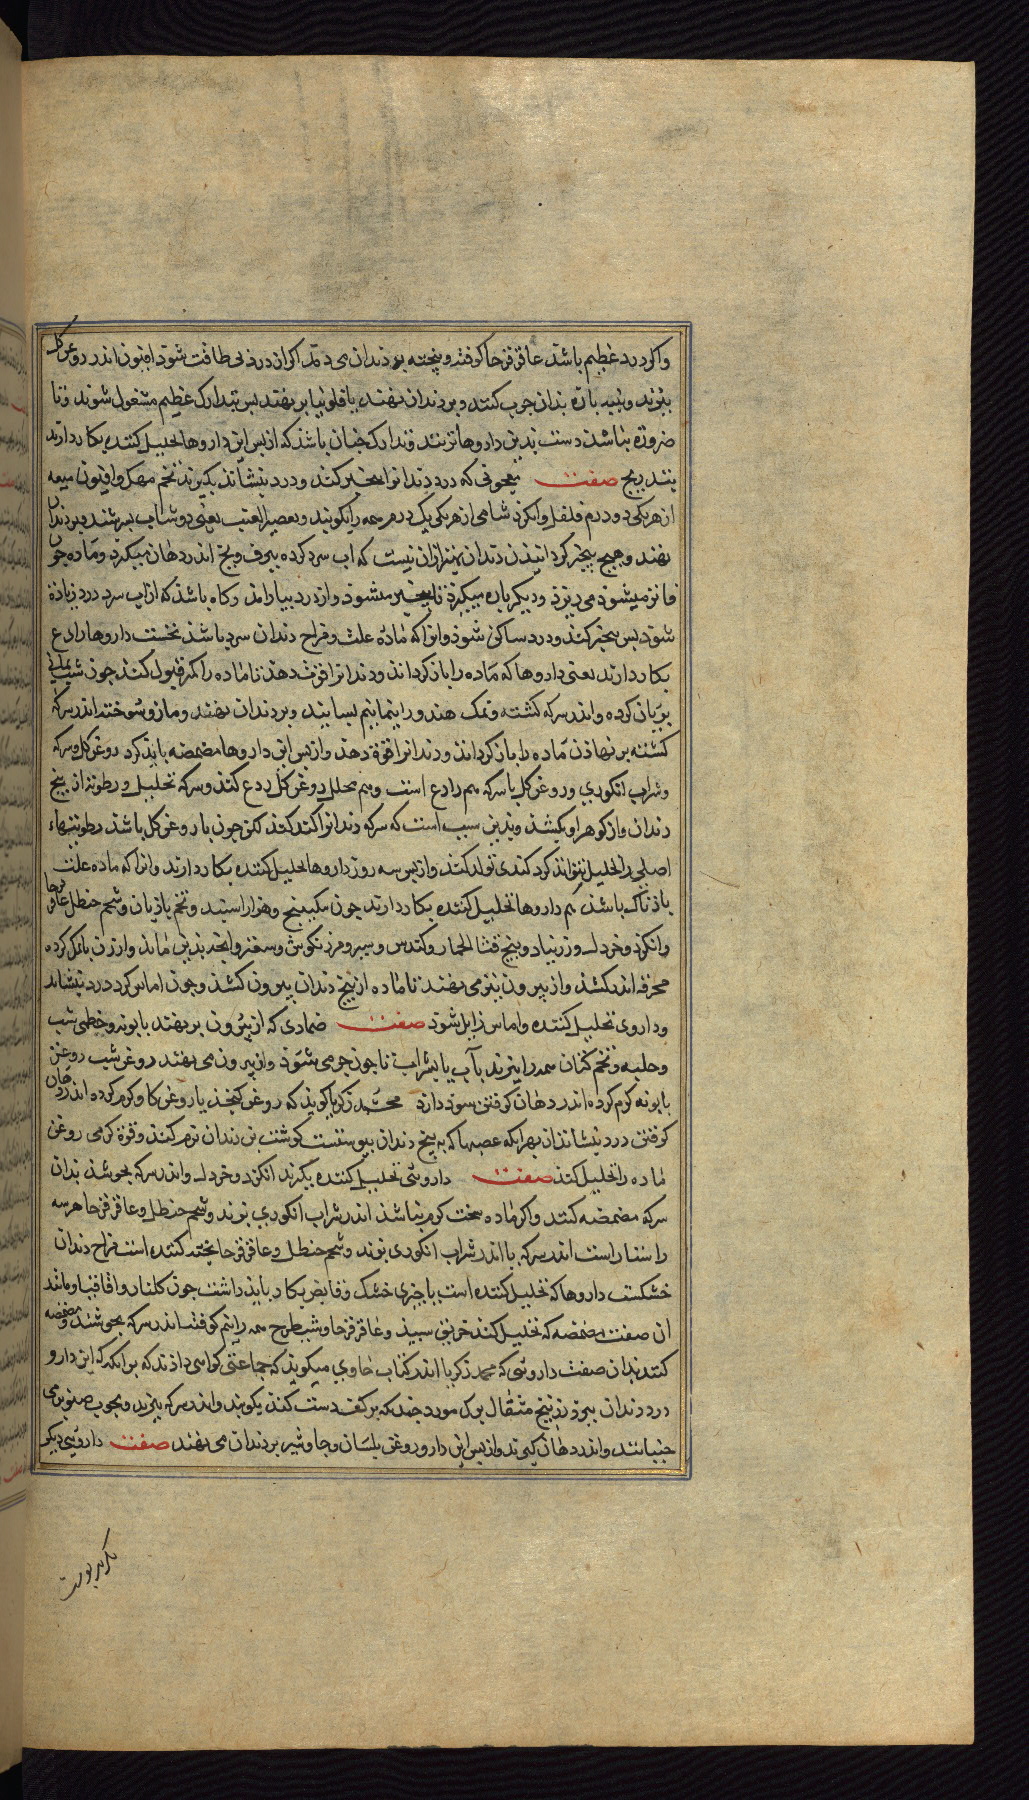 واکر درد عظیم باشد عاقرقرحا کوفته و پیخته بر دندان می دمند اکر از درد بی طاقت شود افیون اندر روغن کل
بپزند و پنبه پاره بدان جرب کنند و بر دندان نهند یا فلونیا بر نهند بس بتدارک عظیم مشغول شوند و تا
ضرورة نباشد دست بدین داروها نزنند و تدارک جنان باشد که از بس این داروها تحلیل کننده بکار دارند
بتدریج صفت معجونی که درد دندانرا بیخبر کند و درد بنشاند بکیرند تخم و افیون میعه
از هر یکی دو درم فلفل و انکزد شامی از هر یکی یک درم همه را بکوبند و بعصیر العنب یعنی دوشاب بسرشند و بر دندان
نهند و هیج بیخبر کردانیدن دندان بهتر از ان نیست که اب سرد کرده ببرف و یخ اندر دهان میکیرد و ماده جون
فاتر میشود می ریزد و دیکر باره میکیرد تا بیخبر میشود و از درد بیارامد و کاه باشد که از اب سرد درد زیادة
شود بس بیخبر کند و درد ساکن شود و انرا که مادۀ علت و مزاج دندان سرد باشد نخست داروها رادع
بکار دارند یعنی داروها که ماده را باز کرداند و دندانرا قوت دهد تا ماده را کمتر قبول کند جون شب یمانی
بریان کرده و اندر سرکه کشته و نمک هند و را بنماینم بسایند و بر دندان نهند و مازو سوخته اندر سرکه
کشته بر نهادن ماده را باز کرداند و دندانرا قوة دهد و از بس این داروها مضمضه باید کرد روغن کل و سرکه
و شراب انکوری و روغن کل با سرکه هم رادع است و هم محلل روغن کل ردع کند و سرکه تحلیل و رطوبة از بیخ
دندان و از کوهر او بکشد و بدین سبب است که سرکه دندانرا کند کند لکن جون با روغن کل باشد رطوبتهاء
اصلی را تحلیل نتواند کرد کندی تولد کند و از بس سه روز داروها تحلیل کننده بکار دارند و انرا که ماده علت
باذناک باشد هم داروها تحلیل کننده بکار دارند جون سکبینج و هزاراسبند و تخم بازیان و شحم حنظل عاقرقرحا
و انکزد و خردل و زرنباد و بیخ قثا الحمار و کندس و سیر و مرزنکوش و سعتر و انجه بدین ماند و ارزن با نمک کرده
بخرقه اندر کشد و از بیرون بنزم می نهند تا ماده از بیخ دندان بیرون کشد و جون اماس کرد درد بنشاند
و داروی تحلیل کننده و اماس زایل شود صفت ضمادی که از بیرون بر نهند بابونه و خطمی شب
و حلبه و تخم کتان همه را بپزند بآب یا بشراب تا جون جو می شود و از بیرون می نهند روغن شب روغن
بابونه کرم کرده اندر دهان کرفتن سود دارد محمد زکریا کوید که روغن کنجد یا روغن کاو کرم کرده اندر دهان
کرفتن درد بنشاند از بهر انکه عصبها که به بیخ دندان بیوستست کوشت بن دندان نرم کند و قوة کرمی روغن
ماده را تحلیل کند صفت داروئی تحلیل کننده بکیرند انکزد و خردل و اندر سرکه بجوشند بدان
سرکه مضمضه کنند و اکر ماده سخت کرم نباشد اندر شراب انکوری بزند و شحم حنظل و عاقرقرحا هر سه
راستاراست اندر سرکه یا اندر شراب انکوری بزند و شحم حنظل و عاقرقرحا پخته کننده است مزاج دندان
خشکست داروها که تحلیل کننده است با جیزی خشک و قابض بکار باید داشت جون کلنار و اقاقیا و مانند
ان صفت مضمضه که تحلیل کند خربق سبید و عاقرقرحا و شیطرج همه را نیم کوفته اندر سرکه بجوشند و مضمضه
کنند بدان صفت داروئی که محمد زکریا اندر کتاب حاوی میکوید که جماعتی کواهی دادند که بر انکه که این دارو
درد دندان ببرد زرنیخ مثقال برک مورد جندان که بر کف دست کند بکوبند و اندر سرکه بپزند و بجوب صنوبر می
جنبانند و اندر دهان کیرند و از بس این دارو روغن بلسان و جاوشیر بر دندان می نهند صفت داروئی دیکر
بکیرند پوست